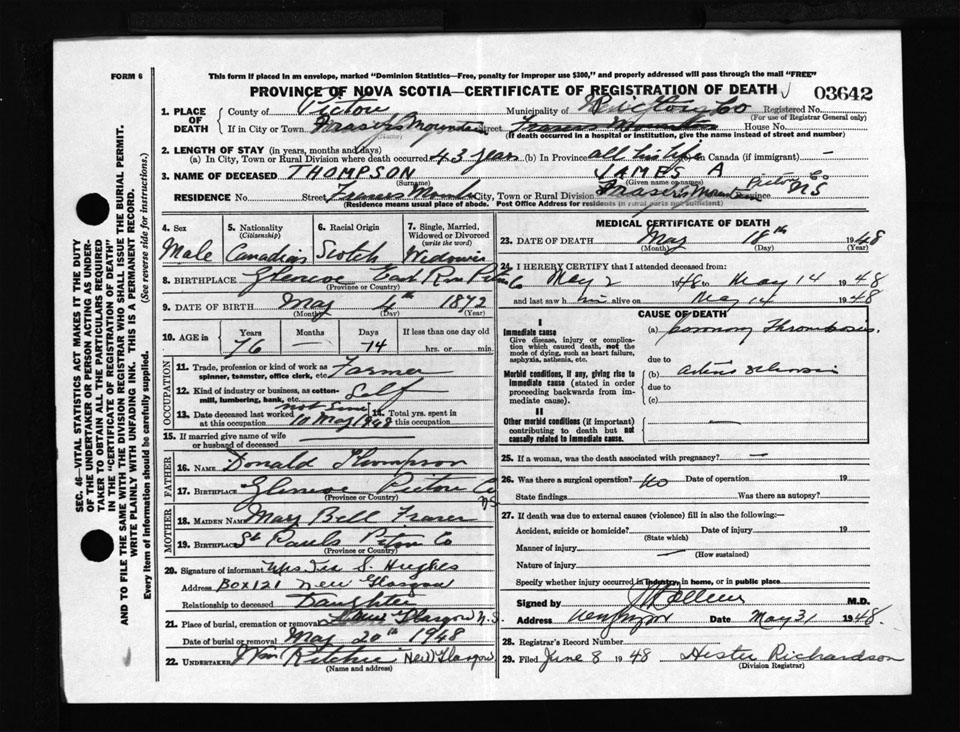 FORM 6
This form if placed in an envelope, marked "Dominion Statistics—Free, penalty for improper use $300," and properly addressed will pass through the mail "FREE"
PROVINCE OF NOVA SCOTIA—CERTIFICATE OF REGISTRATION OF DEATH 03642
SEC. 46—VITAL STATISTICS ACT MAKES IT THE DUTY
OF THE UNDERTAKER OR PERSON ACTING AS UNDER-
TAKER TO OBTAIN ALL THE PARTICULARS REQUIRED
IN THE "CERTIFICATE OF REGISTRATION OF DEATH"
AND TO FILE THE SAME WITH THE DIVISION REGISTRAR WHO SHALL ISSUE THE BURIAL PERMIT.
WRITE PLAINLY WITH UNFADING INK. THIS IS A PERMANENT RECORD.
Every item of information should be carefully supplied. (See reverse side for instructions.)
1. PLACE OF DEATH
County of Pictou Municipality of Pictou Co Registered No.
(For use of Registrar General only)
If in City or Town Frasers Mountain Street Frasers Mountain House No.
(If death occurred in a hospital or institution, give the name instead of street and number)
2. LENGTH OF STAY (in years, months and days)
(a) In City, Town or Rural Division where death occurred 43 years (b) In Province all his life in Canada (if immigrant) —
3. NAME OF DECEASED THOMPSON JAMES A
(Surname) (Given name or names)
RESIDENCE No. Street Frasers Mount City, Town or Rural Division Frasers Mount Province Pictou Co NS
(Residence means usual place of abode. Post Office Address for residents in rural parts not sufficient)
4. Sex Male
5. Nationality (Citizenship) Canadian
6. Racial Origin Scotch
7. Single, Married, Widowed or Divorced (write the word) Widower
8. BIRTHPLACE Glencoe East River Pictou Co
(Province or Country)
9. DATE OF BIRTH May 4th 1872
(Month) (Day) (Year)
10. AGE in Years 76 Months — Days 14 If less than one day old hrs. or min.
OCCUPATION
11. Trade, profession or kind of work as spinner, teamster, office clerk, etc. Farmer
12. Kind of industry or business, as cotton-mill, lumbering, bank, etc. Self
13. Date deceased last worked at this occupation not since 10 May 1948
14. Total yrs. spent in this occupation
15. If married give name of wife or husband of deceased —
FATHER
16. NAME Donald Thompson
17. BIRTHPLACE Glencoe Pictou Co NS
(Province or Country)
MOTHER
18. MAIDEN NAME Mary Bell Fraser
19. BIRTHPLACE St Pauls Pictou Co
(Province or Country)
20. Signature of informant Mrs S. Hughes
Address BOX 121 New Glasgow
Relationship to deceased Daughter
21. Place of burial, cremation or removal New Glasgow N.S.
Date of burial or removal May 20th 1948
22. UNDERTAKER Wm Ritchie New Glasgow
(Name and address)
MEDICAL CERTIFICATE OF DEATH
23. DATE OF DEATH May 18th 1948
(Month) (Day)
24. I HEREBY CERTIFY that I attended deceased from:
May 2 1948 to May 14 1948
and last saw him alive on May 14 1948
CAUSE OF DEATH
I
Immediate cause
Give disease, injury or complication which caused death, not the mode of dying, such as heart failure, asphyxia, asthenia, etc.
(a) Coronary Thrombosis
due to
Morbid conditions, if any, giving rise to immediate cause (stated in order proceeding backwards from immediate cause).
(b) Arterio sclerosis
due to
(c)
II
Other morbid conditions (if important) contributing to death but not causally related to immediate cause. —
25. If a woman, was the death associated with pregnancy? —
26. Was there a surgical operation? No Date of operation 19
State findings Was there an autopsy?
27. If death was due to external causes (violence) fill in also the following:—
Accident, suicide or homicide? Date of injury 19
(State which)
Manner of injury —
(How sustained)
Nature of injury
Specify whether injury occurred in industry, in home, or in public place
Signed by M.D.
Address Date May 31 1948.
28. Registrar's Record Number
29. Filed June 8 1948 Hester Richardson
(Division Registrar)